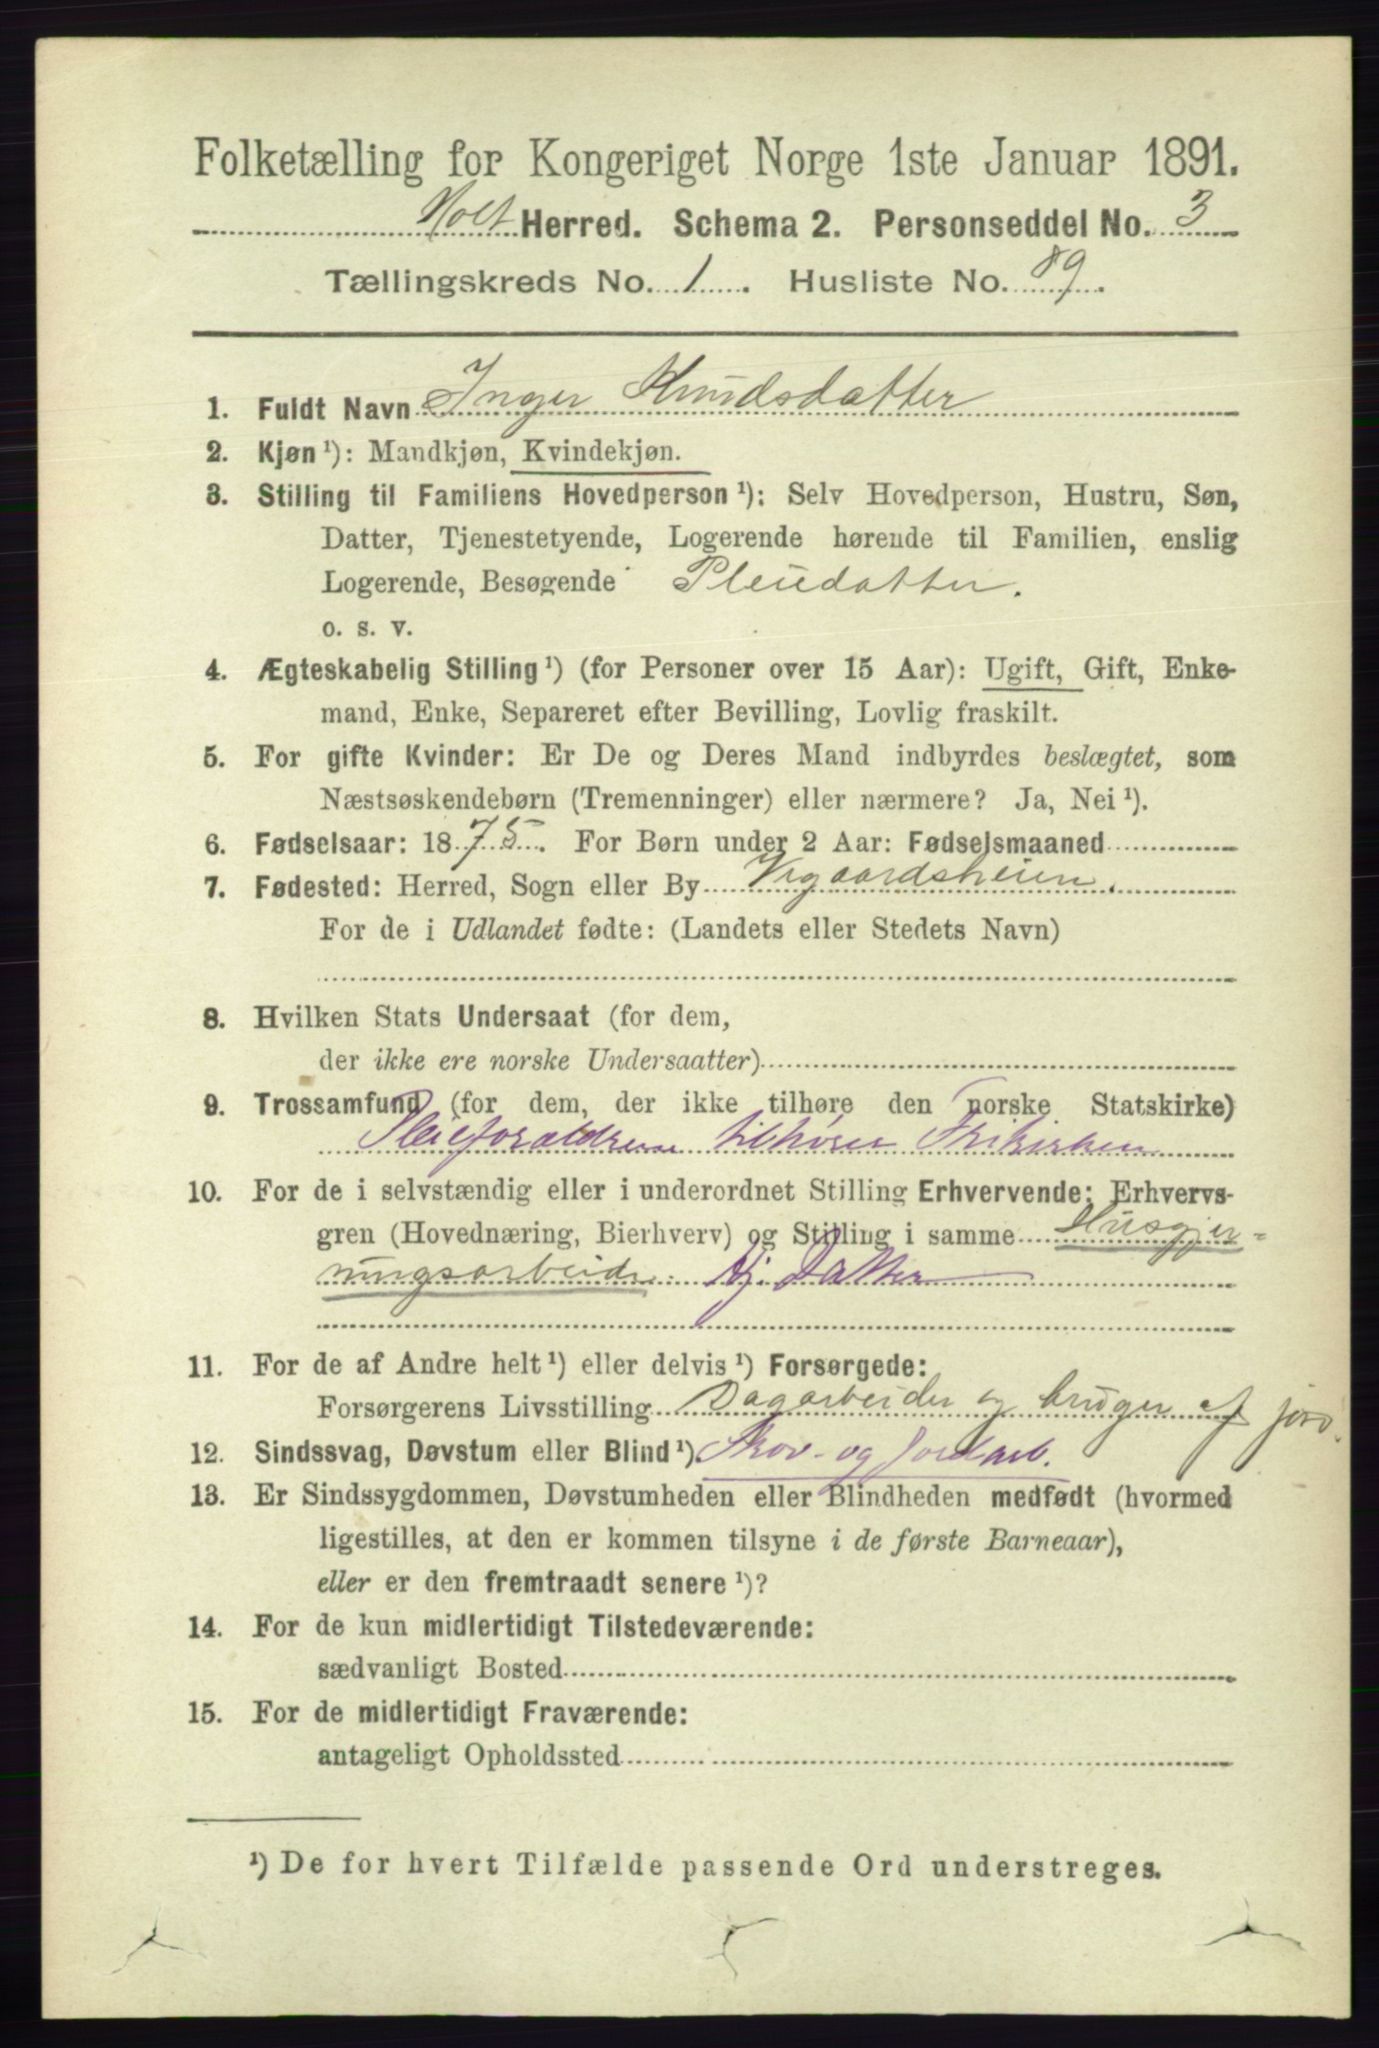 Folketælling for Kongeriget Norge 1ste Januar 1891.
Holt Herred. Schema 2. Personseddel No. 3
Tællingskreds No. 1. Husliste No. 89.
1. Fuldt Navn Inger Knudsdatter
2. Kjøn ¹): Mandkjøn, Kvindekjøn.
3. Stilling til Familiens Hovedperson ¹): Selv Hovedperson, Hustru, Søn,
Datter, Tjenestetyende, Logerende hørende til Familien, enslig
Logerende, Besøgende Pleiedatter.
o. s. v.
4. Ægteskabelig Stilling ¹) (for Personer over 15 Aar): Ugift, Gift, Enke-
mand, Enke, Separeret efter Bevilling, Lovlig fraskilt.
5. For gifte Kvinder: Er De og Deres Mand indbyrdes beslægtet, som
Næstsøskendebørn (Tremenninger) eller nærmere? Ja, Nei ¹).
6. Fødselsaar: 1875. For Børn under 2 Aar: Fødselsmaaned
7. Fødested: Herred, Sogn eller By Vegaardsheien.
For de i Udlandet fødte: (Landets eller Stedets Navn)
8. Hvilken Stats Undersaat (for dem,
der ikke ere norske Undersaatter)
9. Trossamfund (for dem, der ikke tilhøre den norske Statskirke)
Pleieforældrene tilhører Frikirken
10. For de i selvstændig eller i underordnet Stilling Erhvervende: Erhvervs-
gren (Hovednæring, Bierhverv) og Stilling i samme Husgjer-
ningsarbeide. hj. Datter
11. For de af Andre helt ¹) eller delvis ¹) Forsørgede:
Forsørgerens Livsstilling Dagarbeider og bruger af jord.
12. Sindssvag, Døvstum eller Blind ¹) Skov- og Jordarb.
13. Er Sindssygdommen, Døvstumheden eller Blindheden medfødt (hvormed
ligestilles, at den er kommen tilsyne i de første Barneaar),
eller er den fremtraadt senere ¹)?
14. For de kun midlertidigt Tilstedeværende:
sædvanligt Bosted
15. For de midlertidigt Fraværende:
antageligt Opholdssted
¹) De for hvert Tilfælde passende Ord understreges.